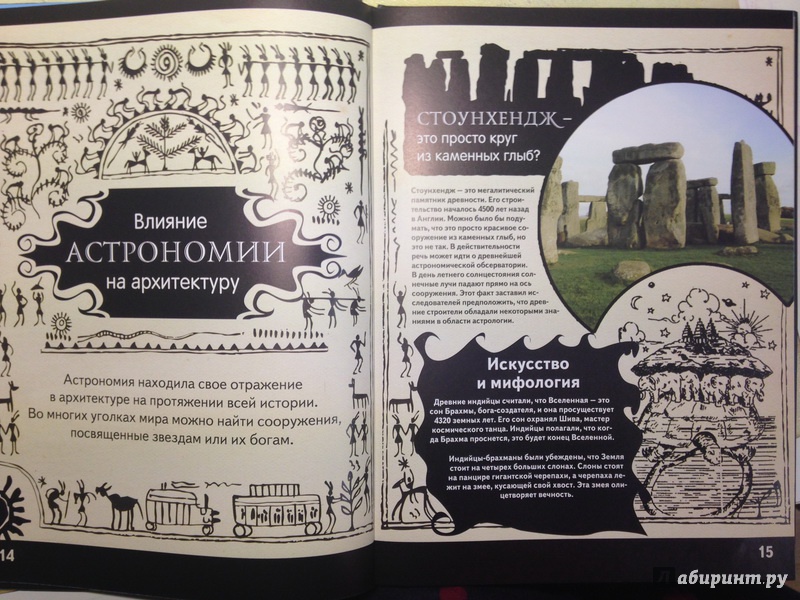 Влияние
АСТРОНОМИИ
на архитектуру
Астрономия находила свое отражение
в архитектуре на протяжении всей истории.
Во многих уголках мира можно найти сооружения,
посвященные звездам или их богам.
14
СТОУНХЕНДЖ –
это просто круг
из каменных глыб?
Стоунхендж — это мегалитический
памятник древности. Его строи-
тельство началось 4500 лет назад
в Англии. Можно было бы поду-
мать, что это просто красивое со-
оружение из каменных глыб, но
это не так. В действительности
речь может идти о древнейшей
астрономической обсерватории.
В день летнего солнцестояния сол-
нечные лучи падают прямо на ось
сооружения. Этот факт заставил ис-
следователей предположить, что древ-
ние строители обладали некоторыми зна-
ниями в области астрологии.
Искусство
и мифология
Древние индийцы считали, что Вселенная — это
сон Брахмы, бога-создателя, и она просуществует
4320 земных лет. Его сон охранял Шива, мастер
космического танца. Индийцы полагали, что ког-
да Брахма проснется, это будет конец Вселенной.
Индийцы-брахманы были убеждены, что Земля
стоит на четырех больших слонах. Слоны стоят
на панцире гигантской черепахи, а черепаха ле-
жит на змее, кусающей свой хвост. Эта змея оли-
цетворяет вечность.
15
Лабиринт.ру